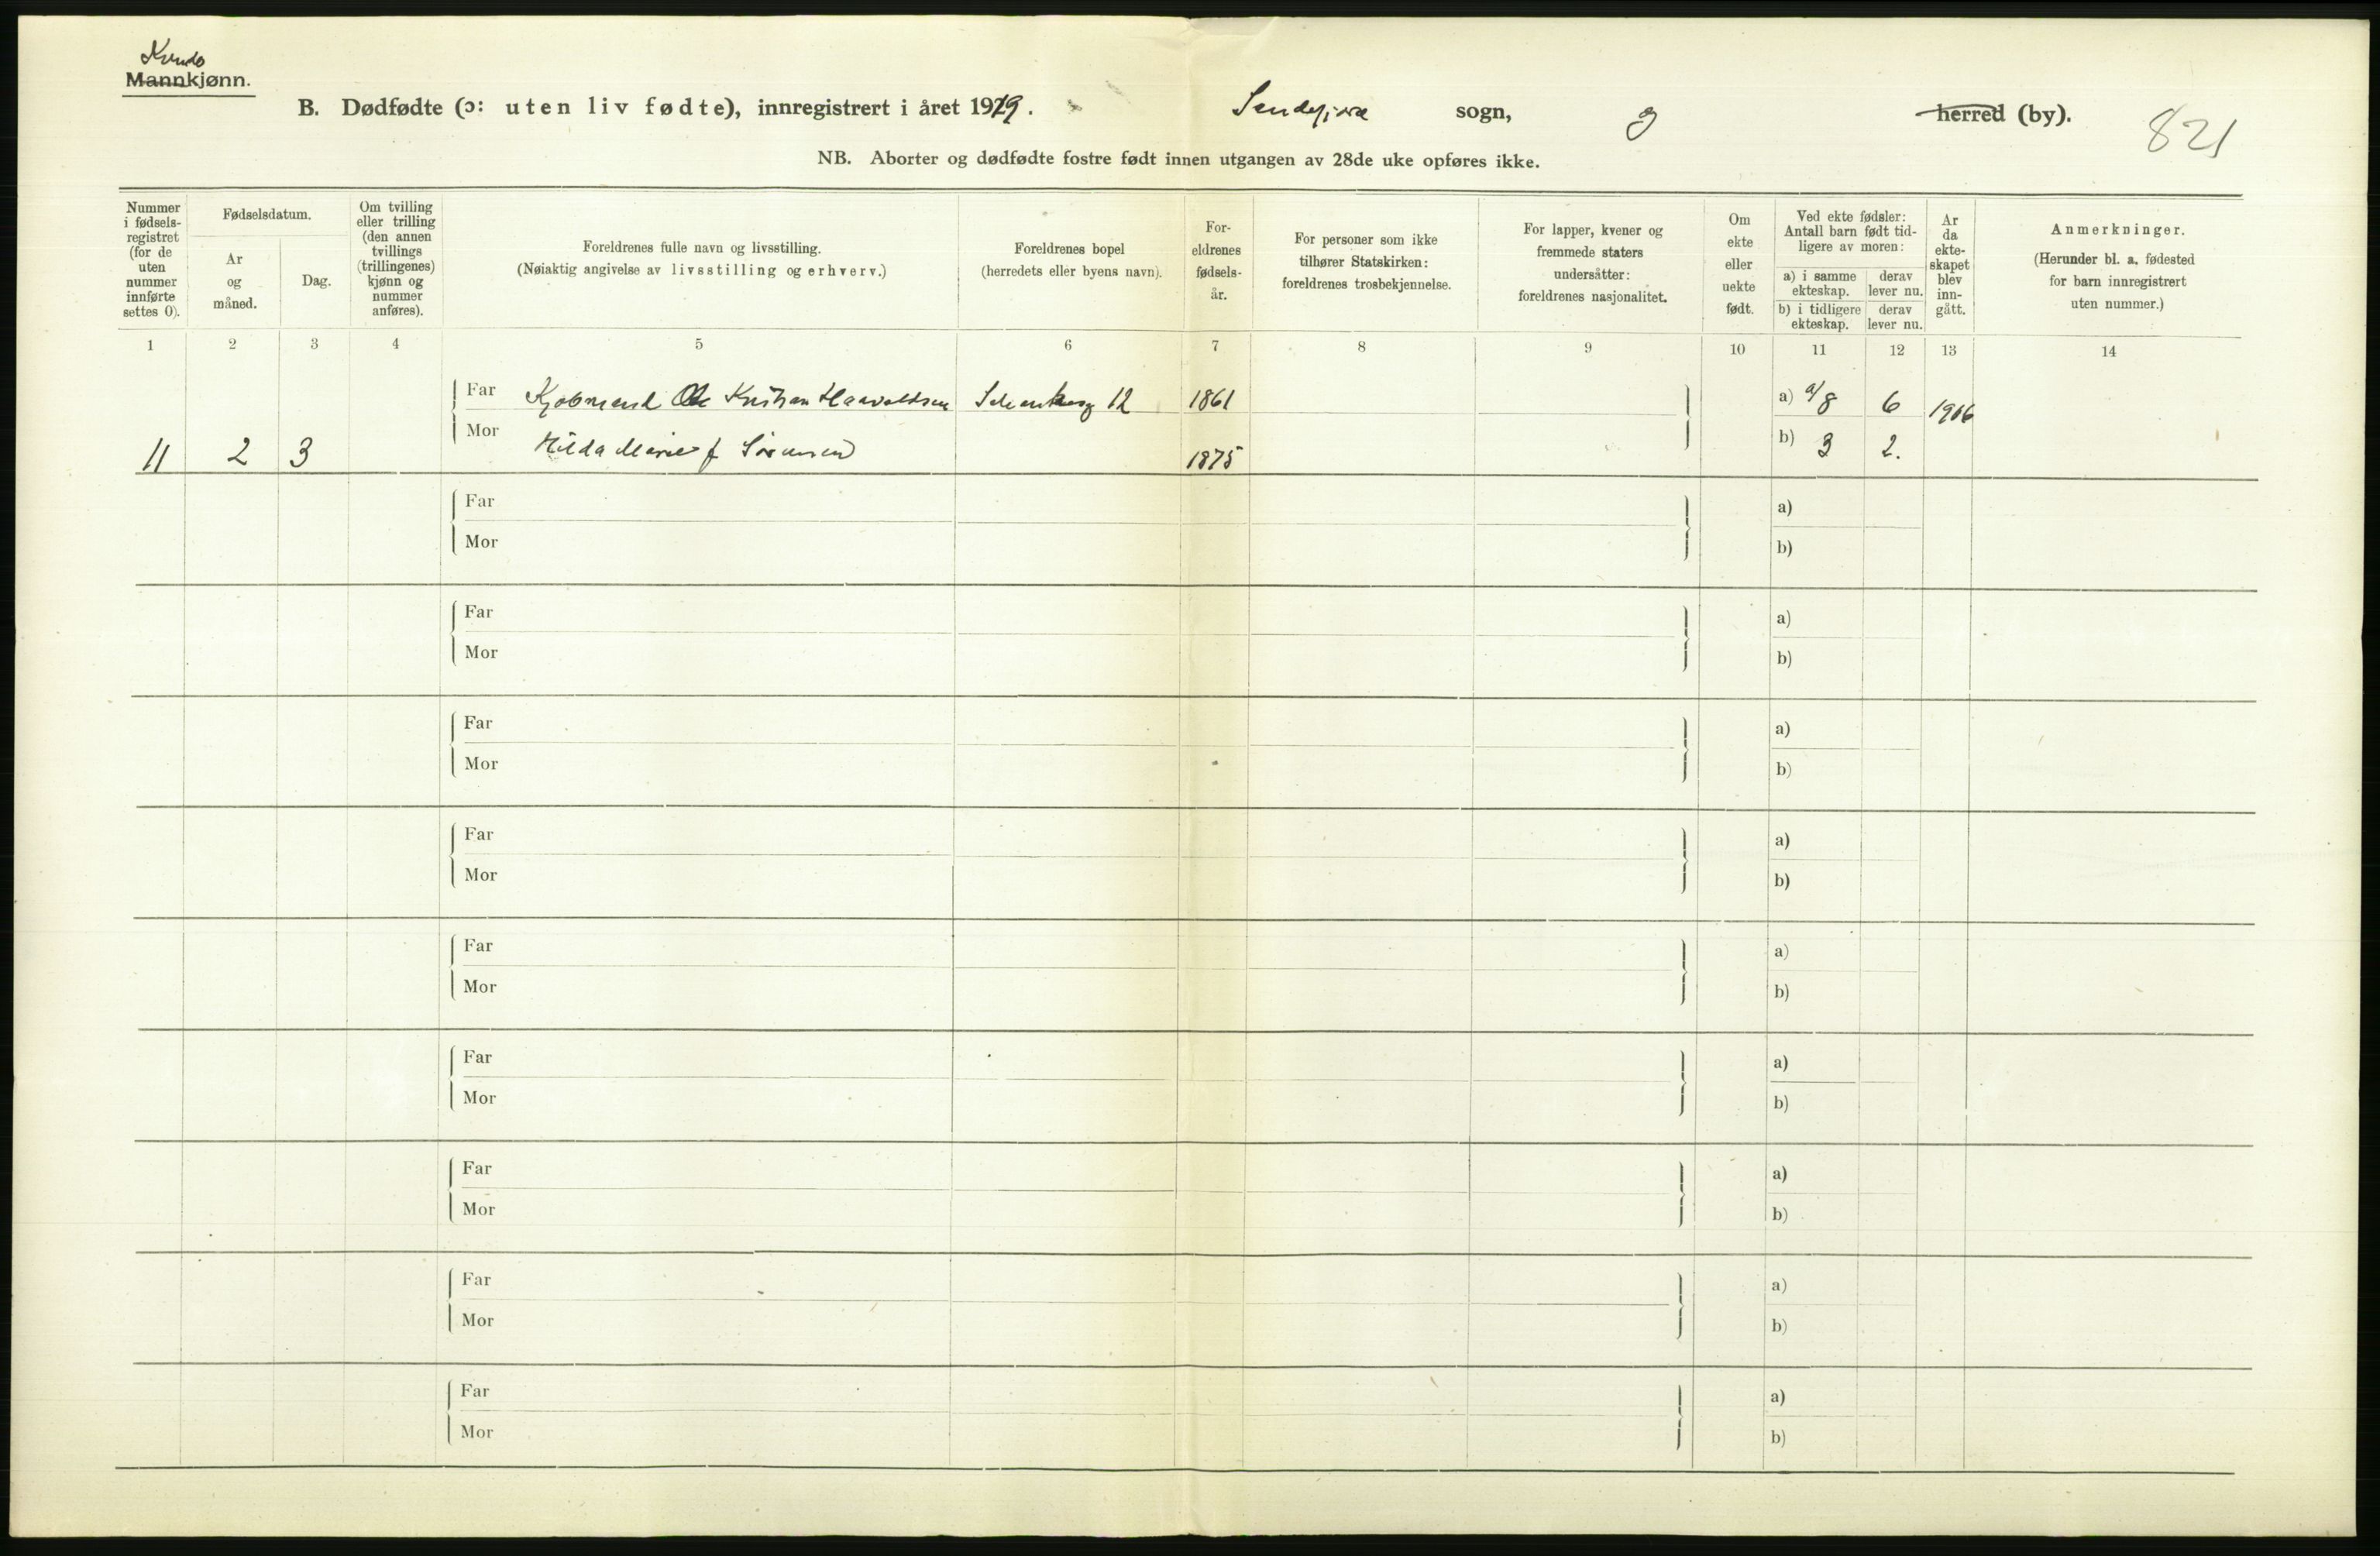 Kvinde
Mannkjønn.
B. Dødfødte (ɔ: uten liv fødte), innregistrert i året 1919. Sandefjord sogn, g herred (by). 821
NB. Aborter og dødfødte fostre født innen utgangen av 28de uke opføres ikke.
Nummer i fødsels-registret (for de uten nummer innførte settes 0).
Fødselsdatum.
År og måned.
Dag.
Om tvilling eller trilling (den annen tvillings (trillingenes) kjønn og nummer anføres).
Foreldrenes fulle navn og livsstilling.
(Nøiaktig angivelse av livsstilling og erhverv.)
Foreldrenes bopel
(herredets eller byens navn).
For-eldrenes fødsels-år.
For personer som ikke tilhører Statskirken: foreldrenes trosbekjennelse.
For lapper, kvener og fremmede staters undersåtter: foreldrenes nasjonalitet.
Om ekte eller uekte født.
Ved ekte fødsler: Antall barn født tid-ligere av moren:
a) i samme ekteskap. derav lever nu.
b) i tidligere ekteskap. derav lever nu.
Ar da ekte-skapet blev inn-gått.
Anmerkninger.
(Herunder bl. a. fødested for barn innregistrert uten nummer.)
1 2 3 4 5 6 7 8 9 10 11 12 13 14
Far Kjøbmand Ole Kristian Haavaldsen 12 1861 a) a/8 6 1906
Mor
11 2 3 Hilda Marie f Sørensen 1875 b) 3 2.
Far a)
Mor b)
Far a)
Mor b)
Far a)
Mor b)
Far a)
Mor b)
Far a)
Mor b)
Far a)
Mor b)
Far a)
Mor b)
Far a)
Mor b)
Far a)
Mor b)